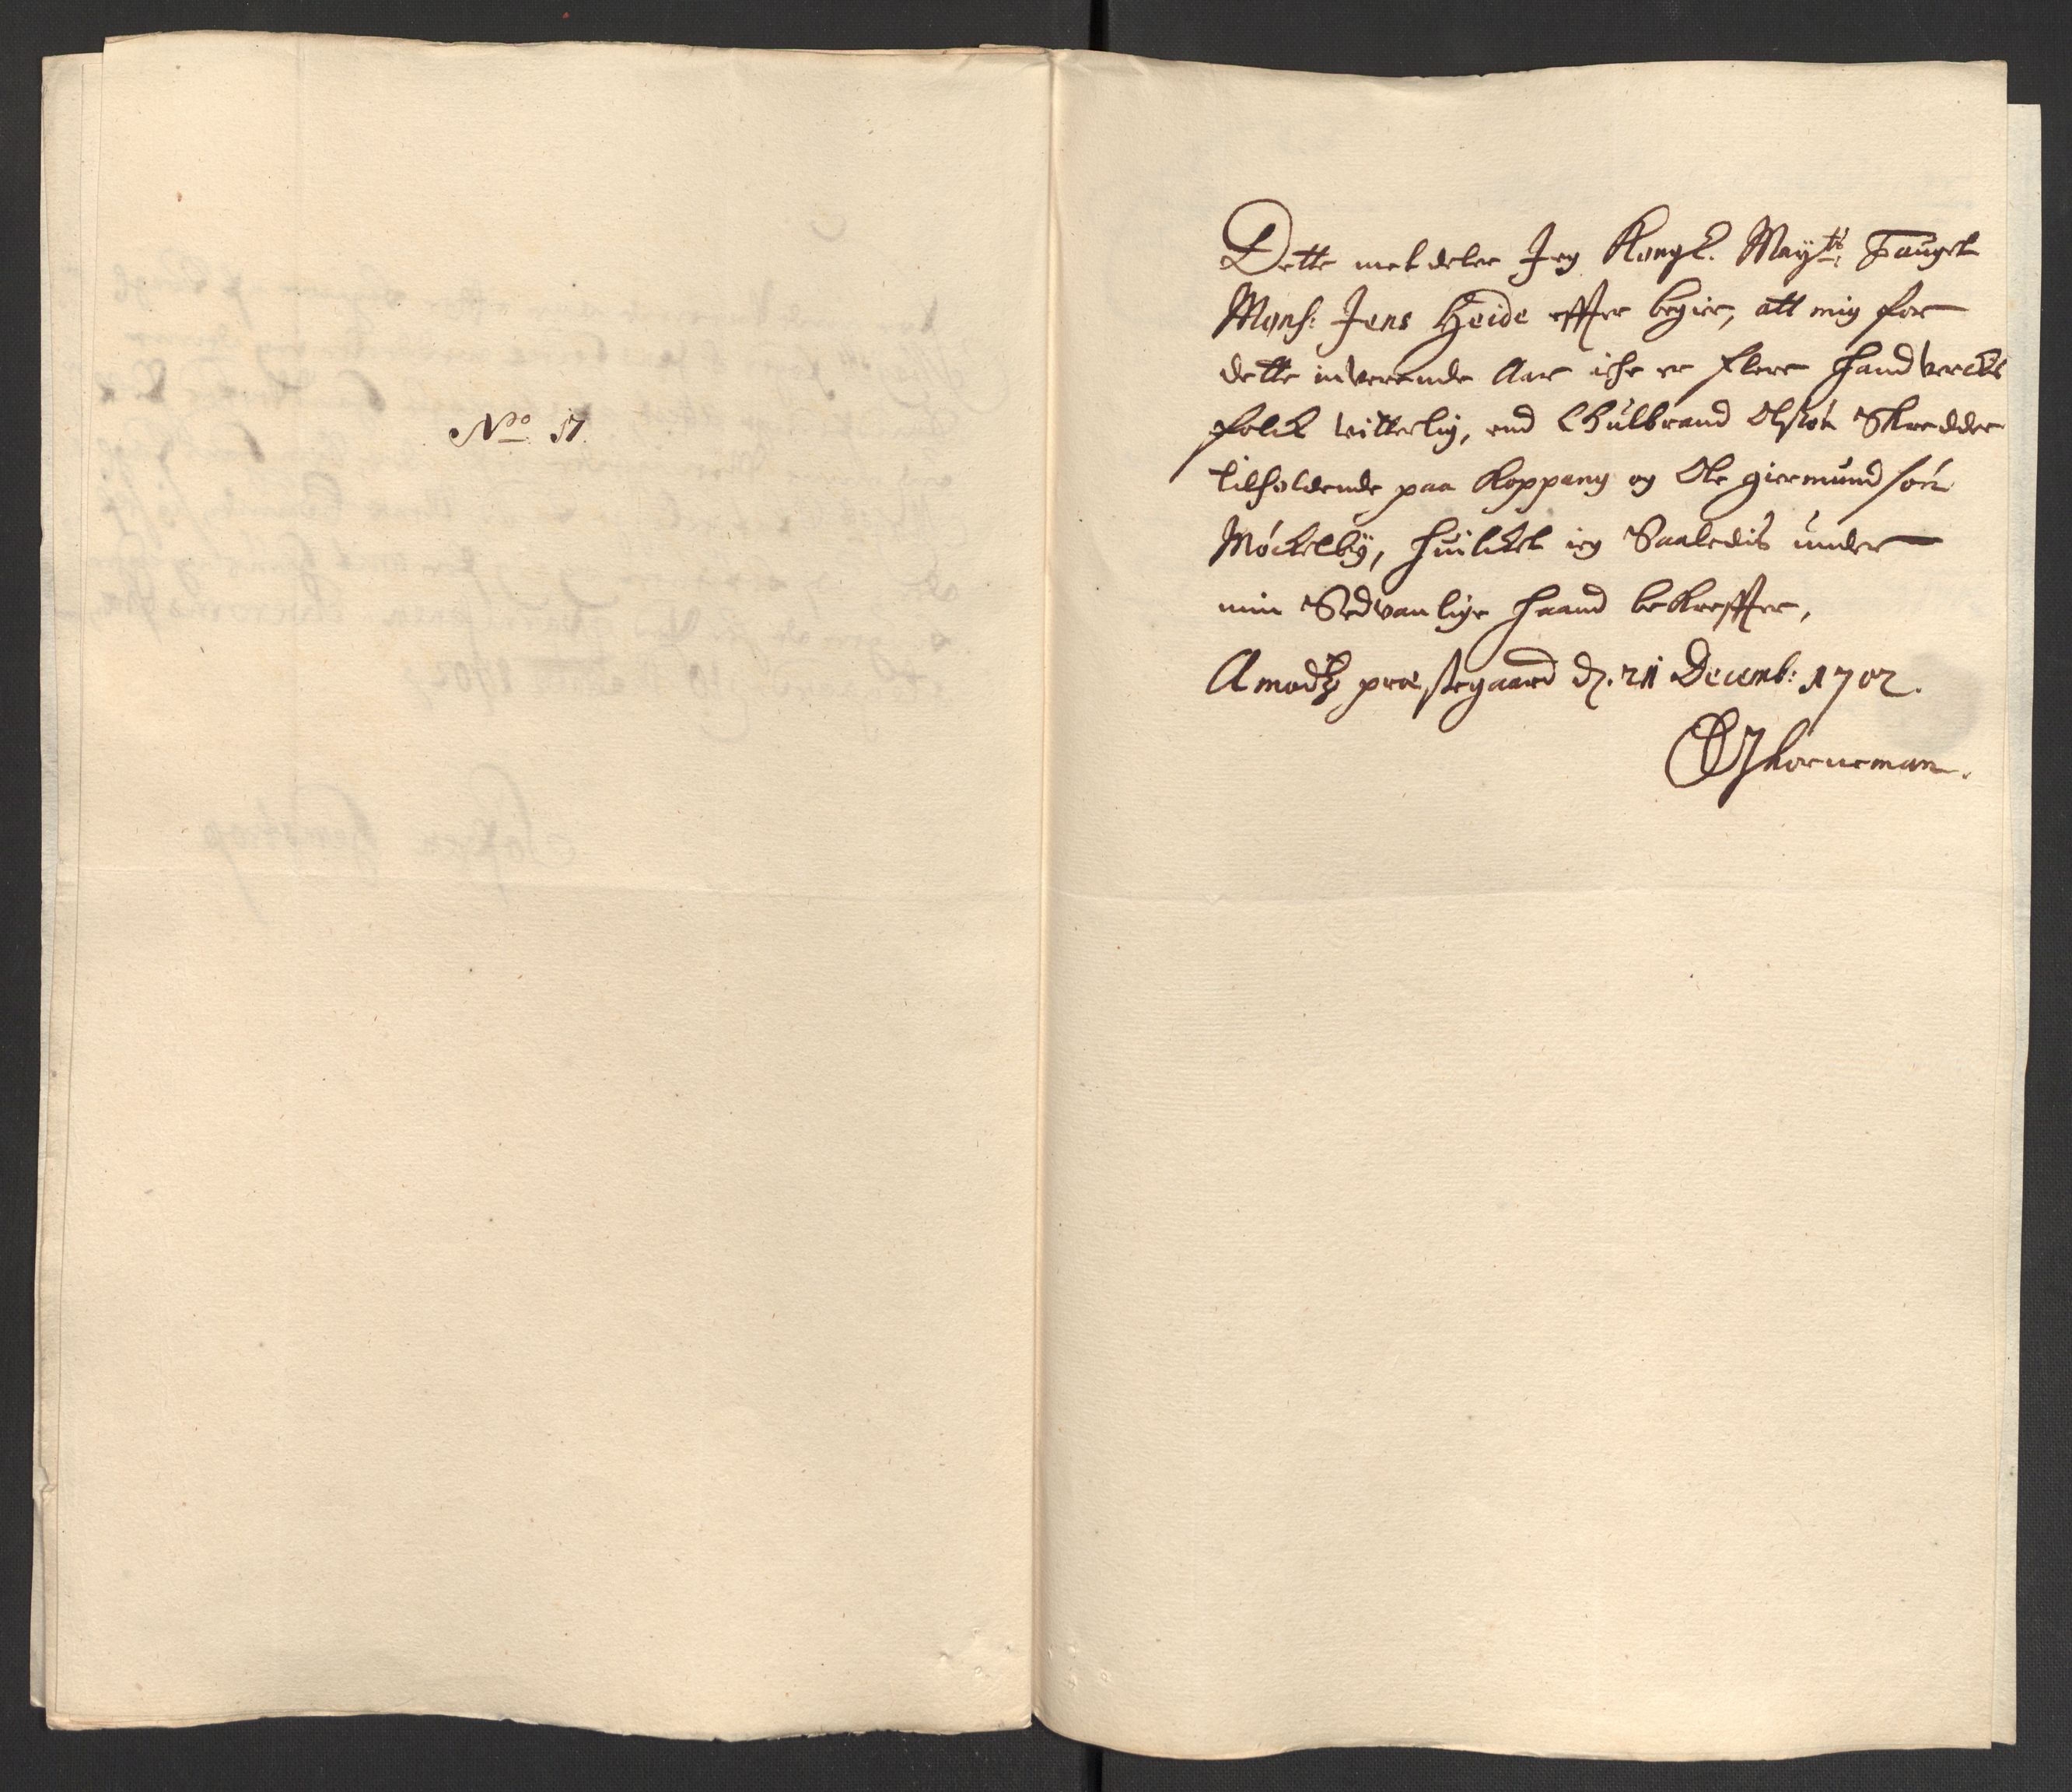 No 17.
Dette meddeler Jeg Kongl. Maytz Fauget
Monsr: Jens Heide effter begier, att mig for
dette inverende Aar iche er flere handvercks
folck vitterlig, end Gulbrand Olsøn Skredder
tilholdende paa Koppang og Ole giermundsøn
Møckelbÿ, huilcket ieg Saaledis under
min Sedvanlige haand bekreffter,
Amodtz præstegaard d. 21 Decemb: 1702.
Horneman.